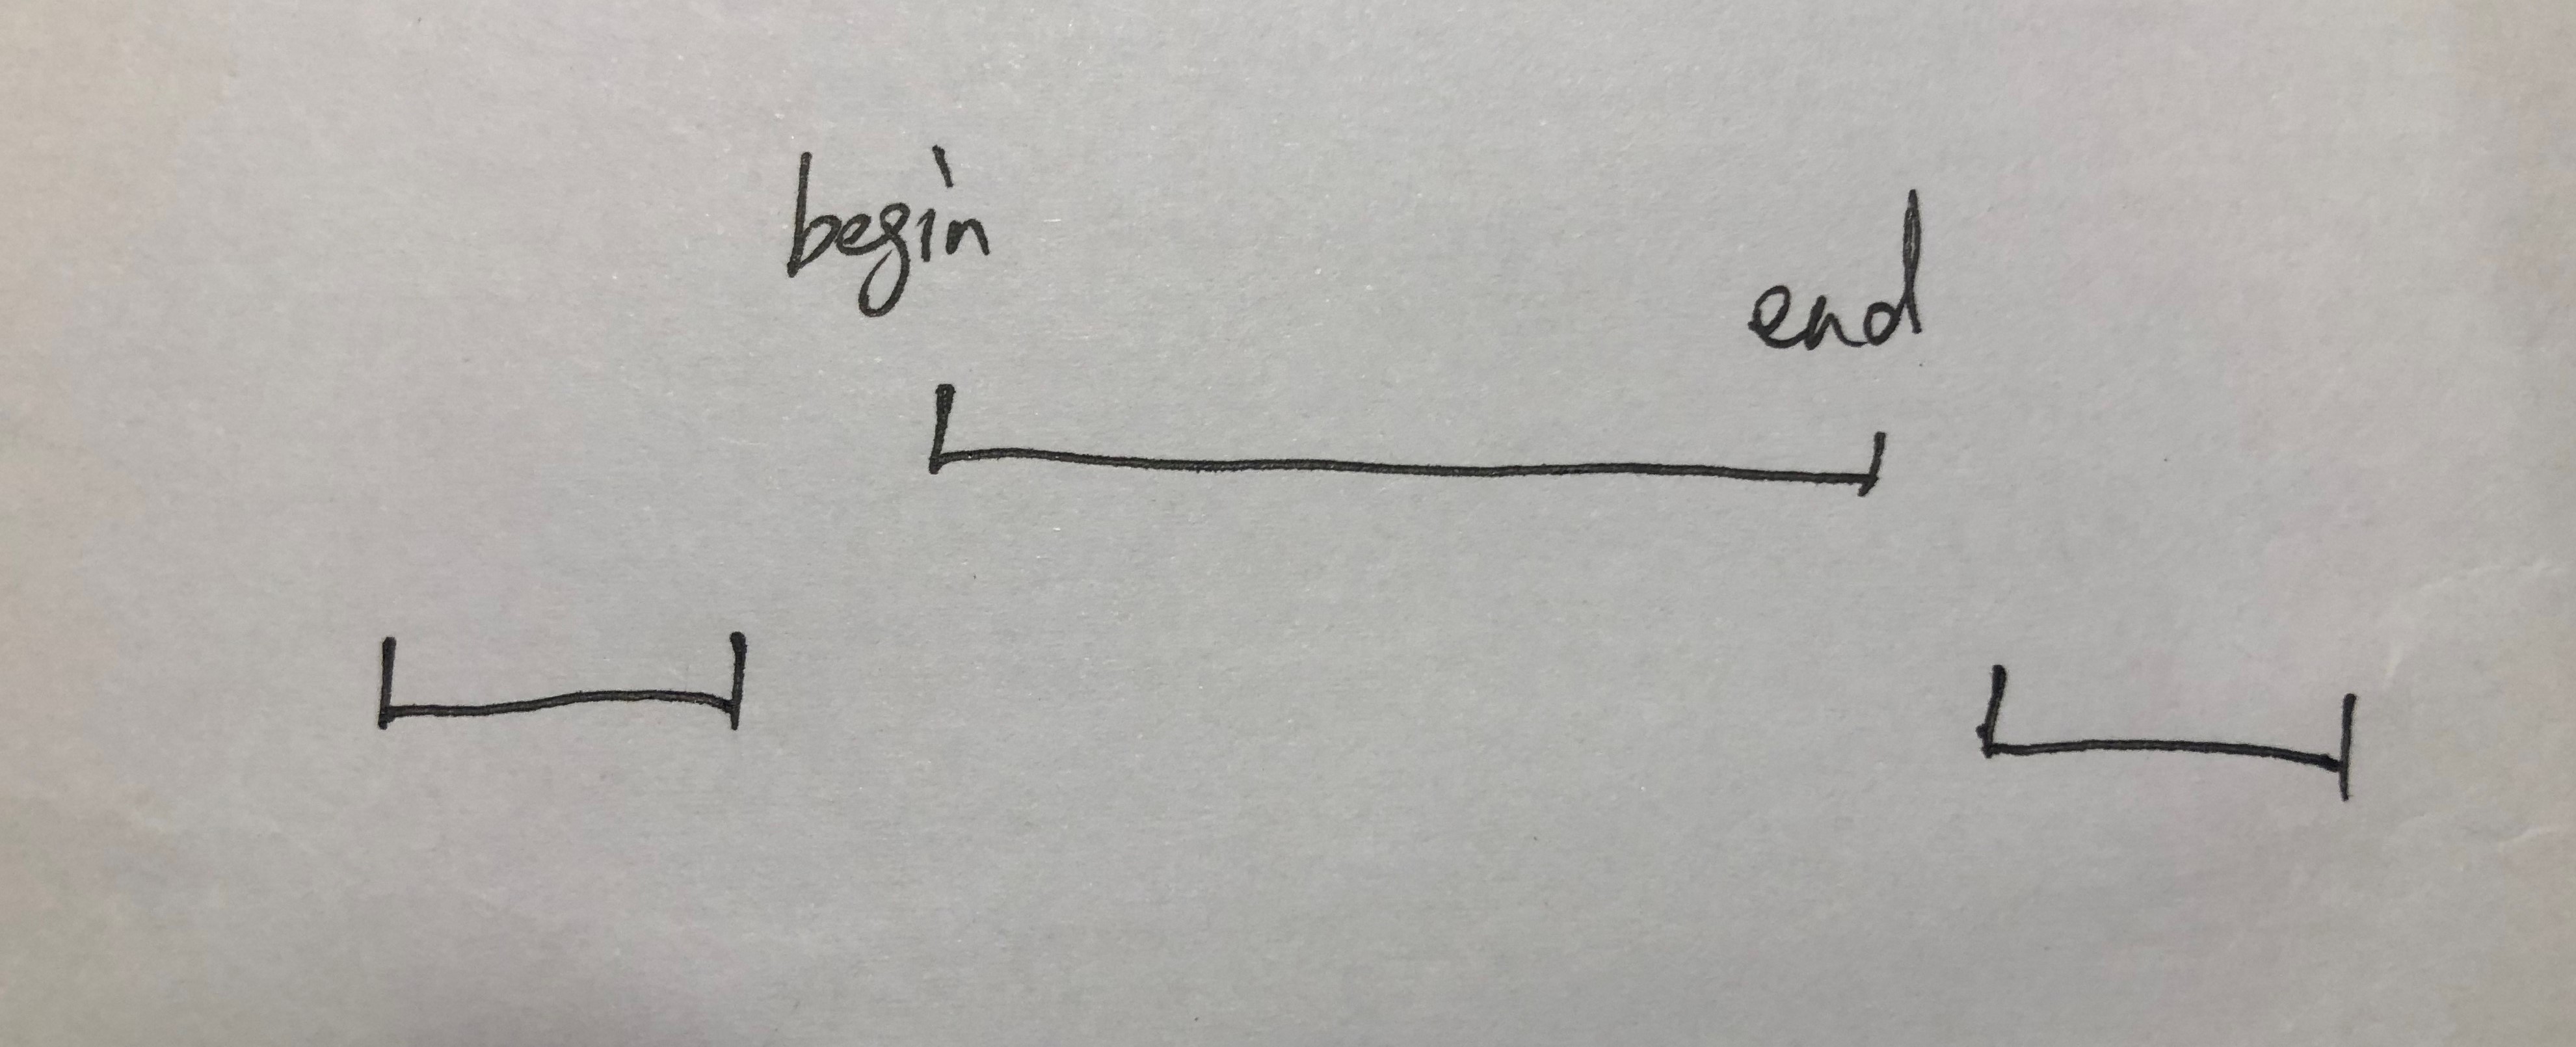 begin
end